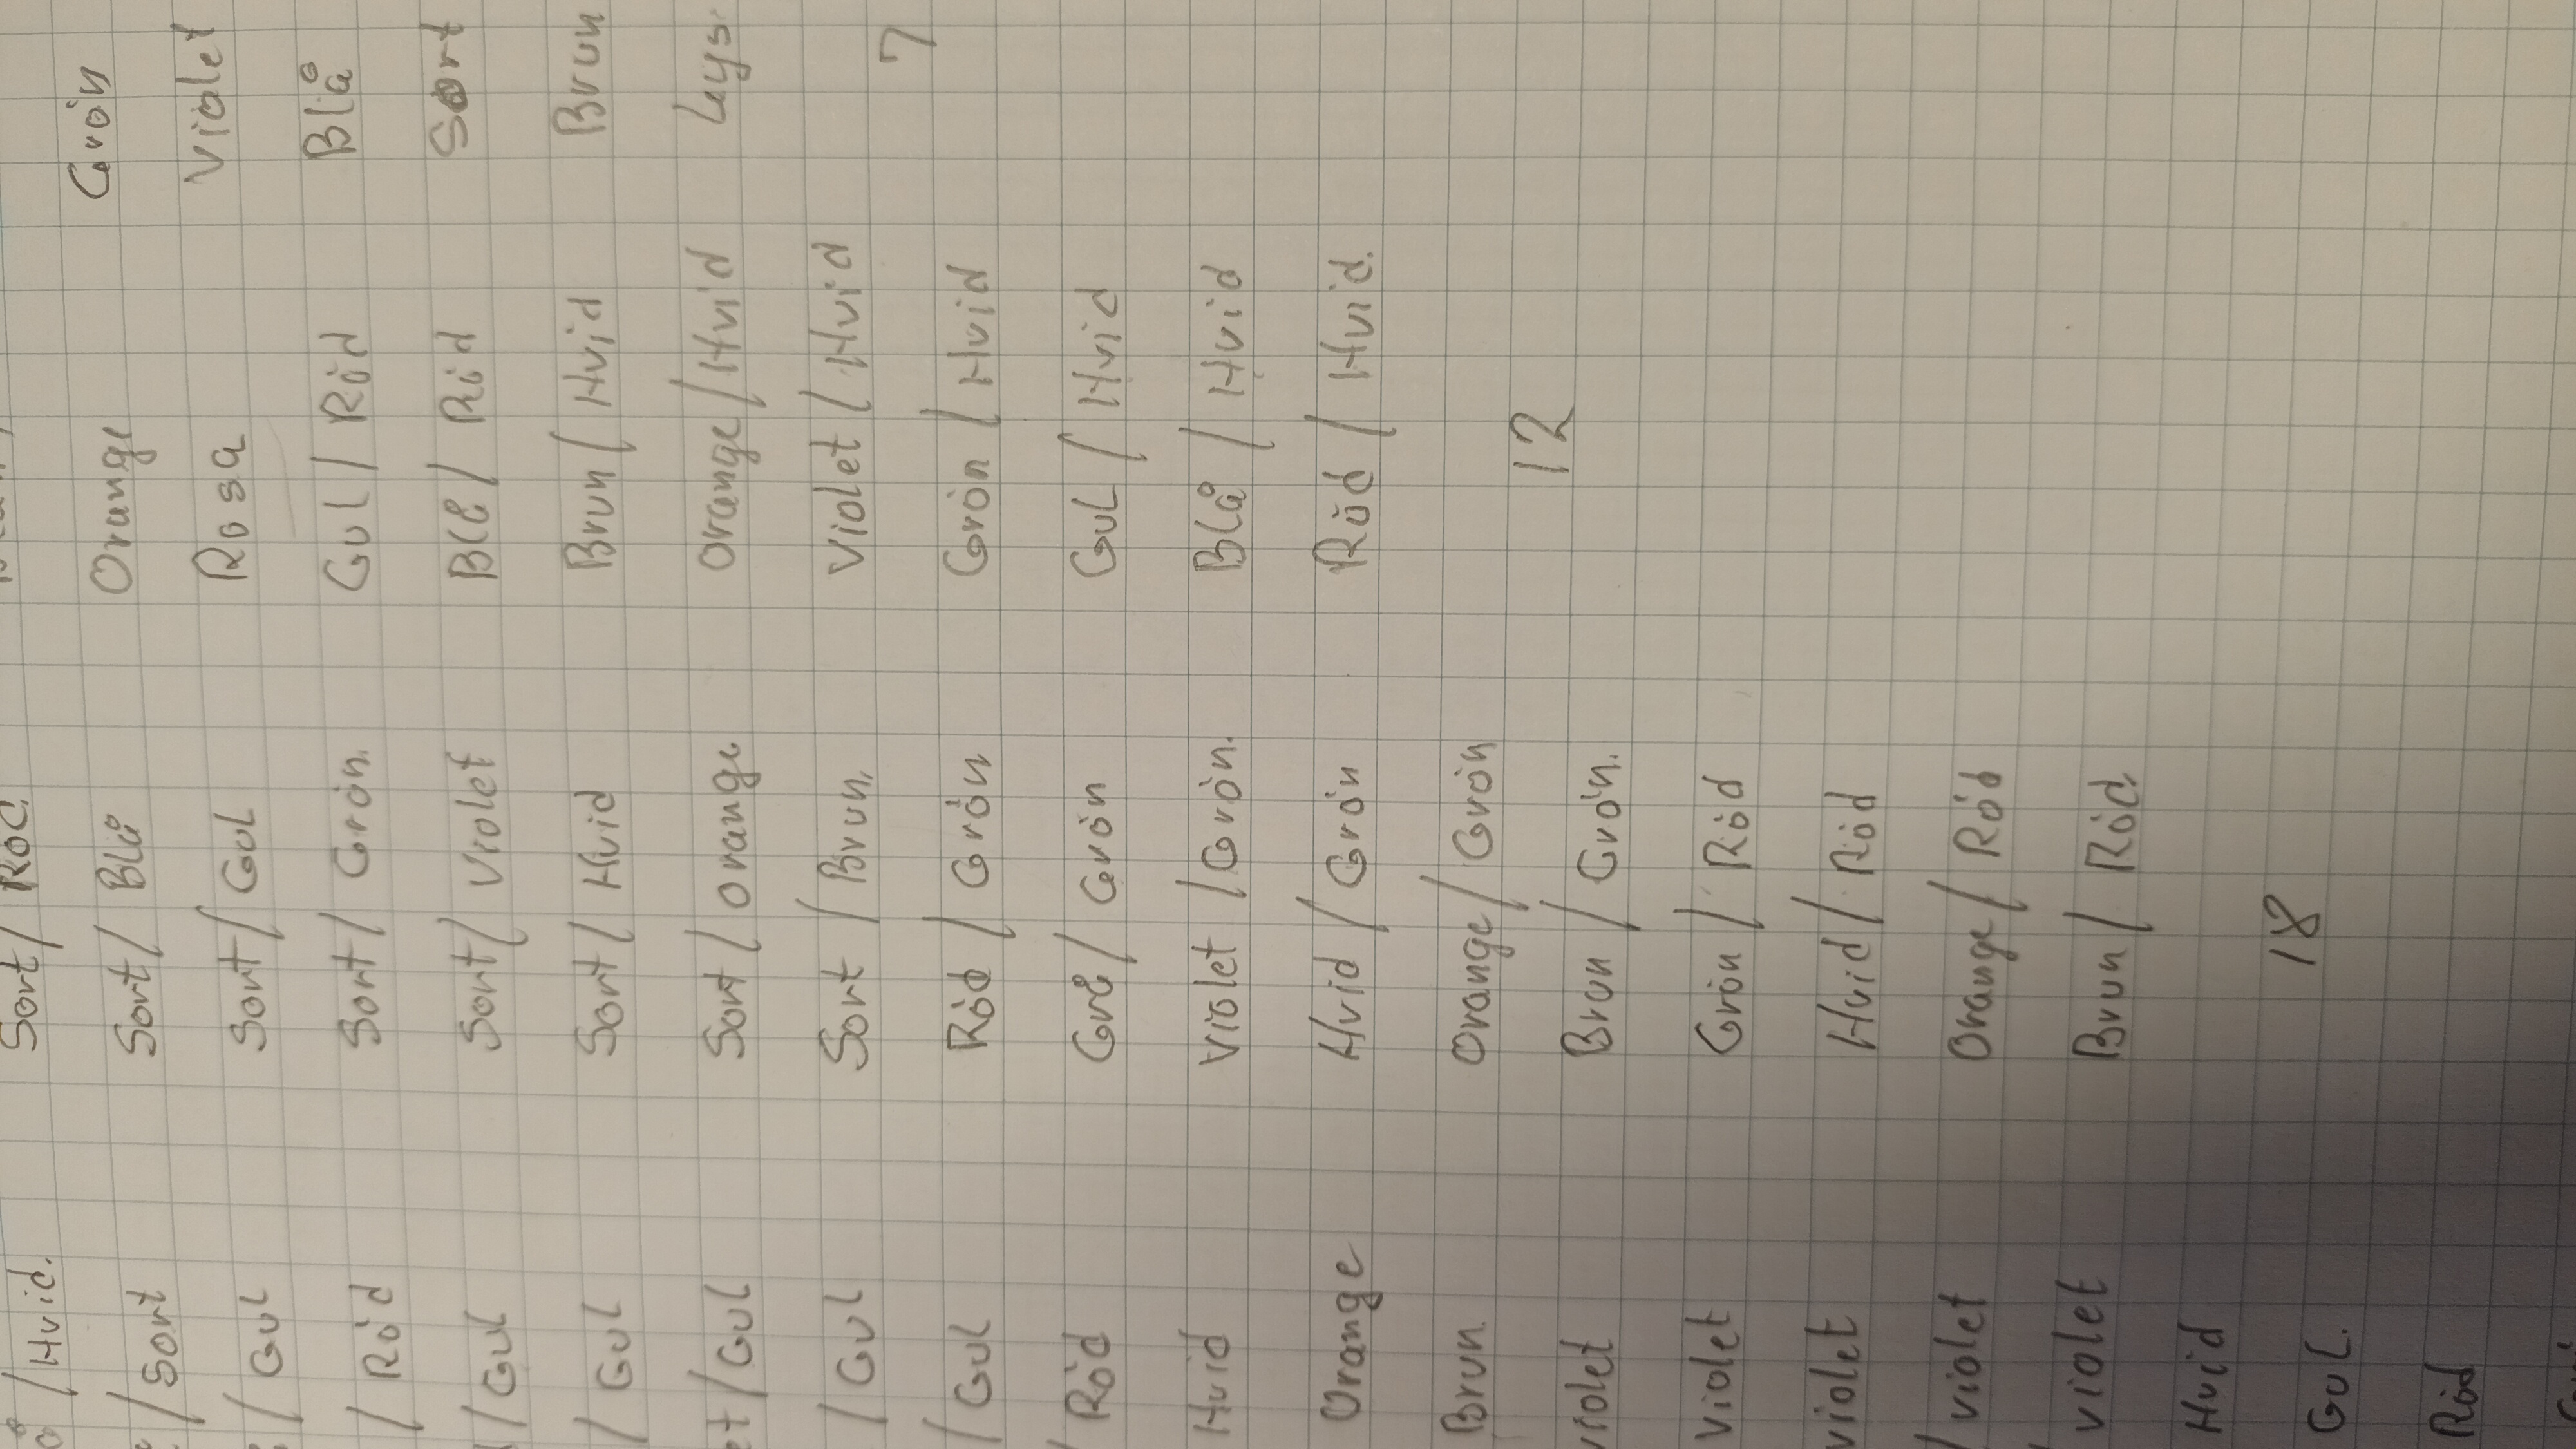 /Hvid.
/Sort
/Gul
/Röd
/Gul
/Gul
/Gul
/Gul
/Gul
Röd
Hvid
Orange
Brun.
violet
violet
violet
/violet
violet
Hvid
Gul.
Röd
Sort/ Röd
Sort/ Blå
Sort/ Gul
Sort/ Grön.
Sort/ Violet
Sort/ Hvid
Sort/ orange
Sort / Brun.
Röd / Grön
Grå/ Grön
violet / Grön.
Hvid / Grön
Orange/ Grön
Brun / Grön.
Grön / Röd
Hvid/ Röd
Orange/ Röd
Brun/ Röd
18
Orange
Rosa
Gul/ Röd
Blå/ Röd
Brun/ Hvid
orange/Hvid
violet/ Hvid
Grön / Hvid
Gul / Hvid
Blå / Hvid
Röd / Hvid.
12
Grön
violet
Blå
Sort
Brun
Lys
7